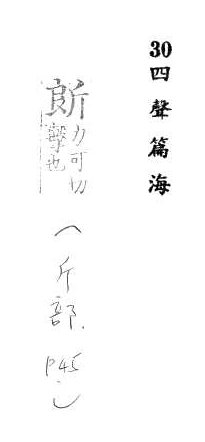 30四聲篇海
力可切
擊也
(斤部. P45)